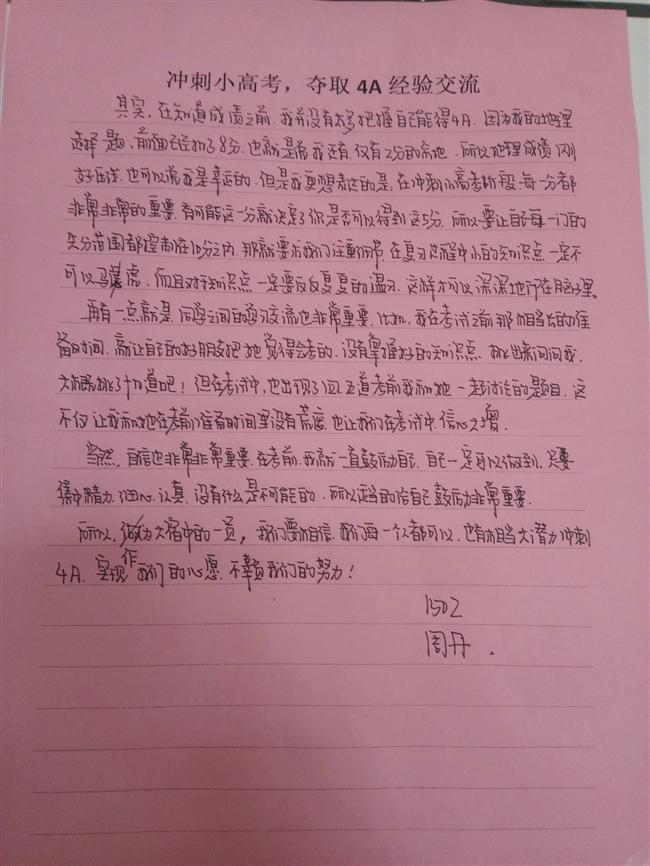 冲刺小高考，夺取 4A 经验交流
其实，在知道成绩之前，我并没有太多把握自己能得4A，因为我的地理
选择题，前面已经扣了8分，也就是说我还有仅有2分的余地，所以地理成绩刚
好压线，也可以说我是幸运的，但是我更想表达的是，在冲刺小高考阶段，每一分都
非常非常的重要，有可能这一分就决定了你是否可以得到这5分，所以要让自己每一门的
失分范围都控制在10分之内，那就要求我们注重细节，在复习过程中小的知识点一定不
可以马虎，而且对于知识点一定要反反复复的温习，这样才可以深深地印在脑子里。
再有一点就是，同学之间的学习交流也非常重要，比如，我在考试之前那相当长的准
备时间，就让自己的好朋友把她觉得会考的，没有掌握好的知识点，挑出来问问我，
大概挑了十几道吧！但在考试中，也出现了四五道考前我和她一起讨论的题目，这
不仅让我和她在考前准备时间里没有荒废，也让我们在考试中信心大增。
当然，自信也非常非常重要，在考前，我就一直鼓励自己，自己一定可以做到，只要
集中精力，细心，认真，没有什么是不可能的，所以适当的给自己鼓励非常重要。
所以，做为大宿中的一员，我们要相信，我们每一个人都可以，也有相当大潜力冲刺
4A，实现我们的心愿，不辜负我们的努力！
作
1502
周丹.